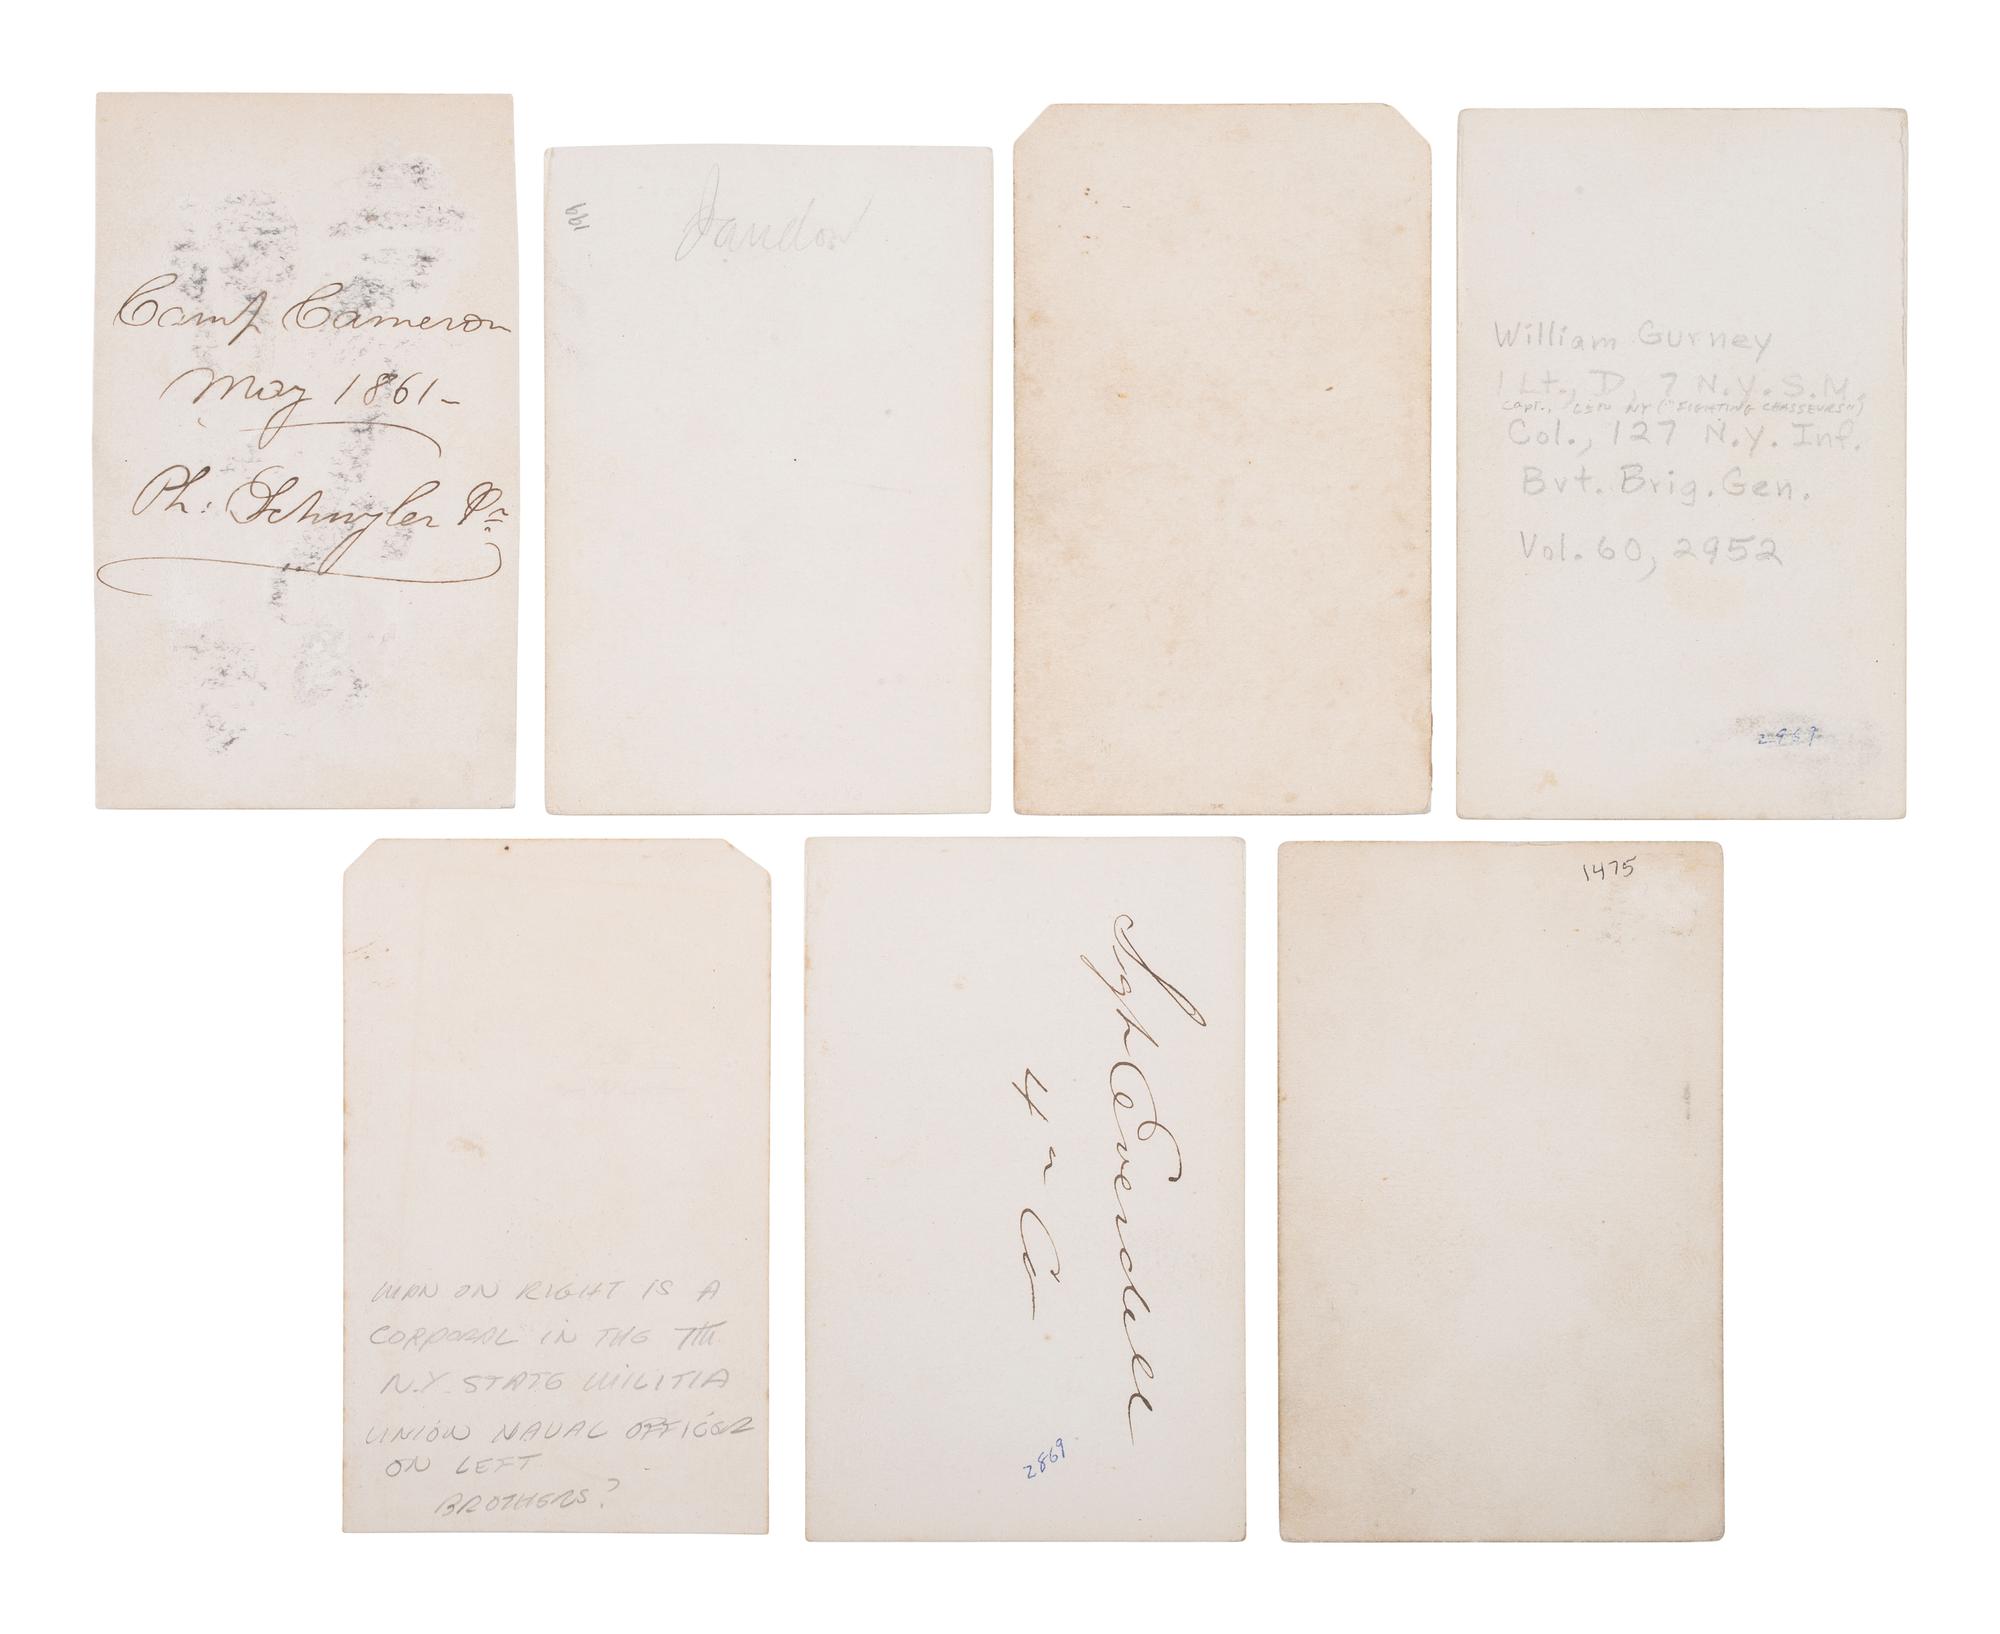 Camp Cameron
May 1861-
Ph: Schuyler Pr
199
Jaudon
William Gurney
1 Lt., D, 7 N.Y.S.M.
Capt., 65TH NY ("FIGHTING CHASSEURS")
Col., 127 N.Y. Inf.
Bvt. Brig. Gen.
Vol. 60, 2952
2969
MAN ON RIGHT IS A
CORPORAL IN THE 7TH
N.Y. STATE MILITIA
UNION NAVAL OFFICER
ON LEFT
BROTHERS?
Sergt Coverdale
4" Co
2869
1475